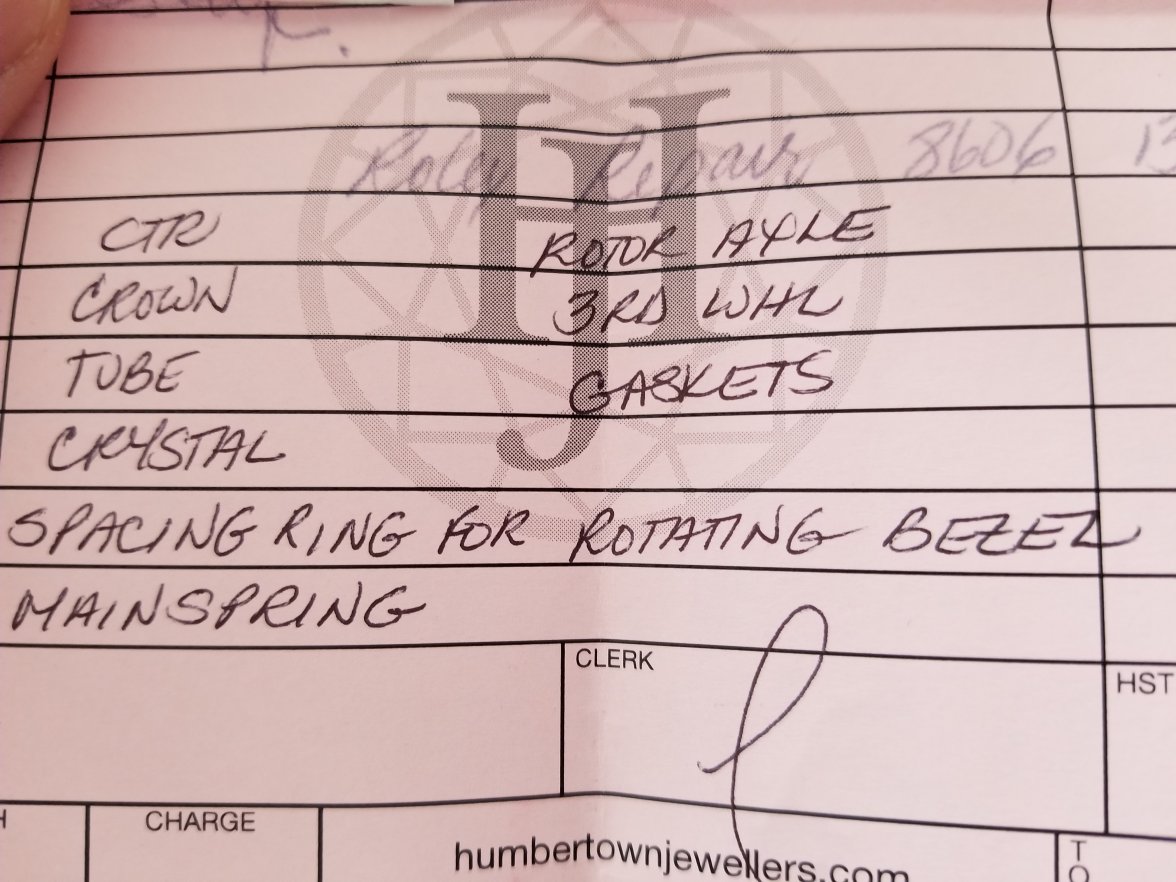 Rolex Repair 8606
CTR ROTOR AXLE
CROWN 3RD WHL
TUBE GASKETS
CRYSTAL
SPACING RING FOR ROTATING BEZEL
MAINSPRING
CLERK
HST
CHARGE
humbertownjewellers.com